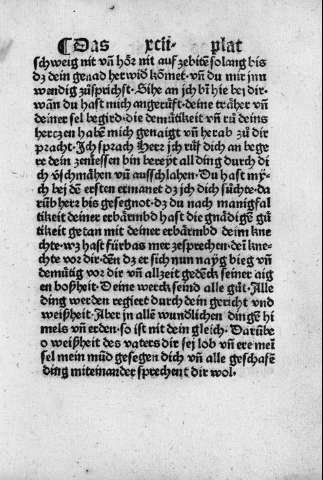 ¶ Das xcii· plat
schweig nit vn̄ hōr nit auf zebitē so lang bis
dz dein genad herwid kōmet· vn̄ du mir jnn
wendig zůsprichst· Sihe an ich bī hie bey dir·
wān du hast mich angerůfft· deine trāher vn̄
deiner sel begird· die demůtikeit vn̄ rů deins
hertzen habē mich genaigt vn̄ herab zů dir
pracht· Ich sprach Herr ich růf dich an begē
re dein zeniessen bin bereyt all ding durch di
ch v̄schmāhen vn̄ ausschlahen· Du hast my̆
ch bey dē ersten ermanet dz ich dich sůchte· da
rūb herr bis gesegnot· dz du nach manigfal
tikeit deiner erbārmbd hast die gnādigē gů
tikeit getan mit deiner erbārmbd deim kne
chte· wz hast fürbas mer zesprechen· dē kne·
chte vor dir· dēn dz er sich nun nayg bieg vn̄
demůtig vor dir vn̄ allzeit gedēck seiner aig
en boßheit· Deine werck seind alle gůt· Alle
ding werden regiert durch dein gericht vnd
weißheit· Aber in allē wundlichen dingē hi
mels vn̄ erden· so ist nit dein gleich· Darūbē
o weißheit des vaters dir sej lob vn̄ ere mei
sel mein mūd gesegen dich vn̄ alle geschafē
ding miteinander sprechent dir wol·